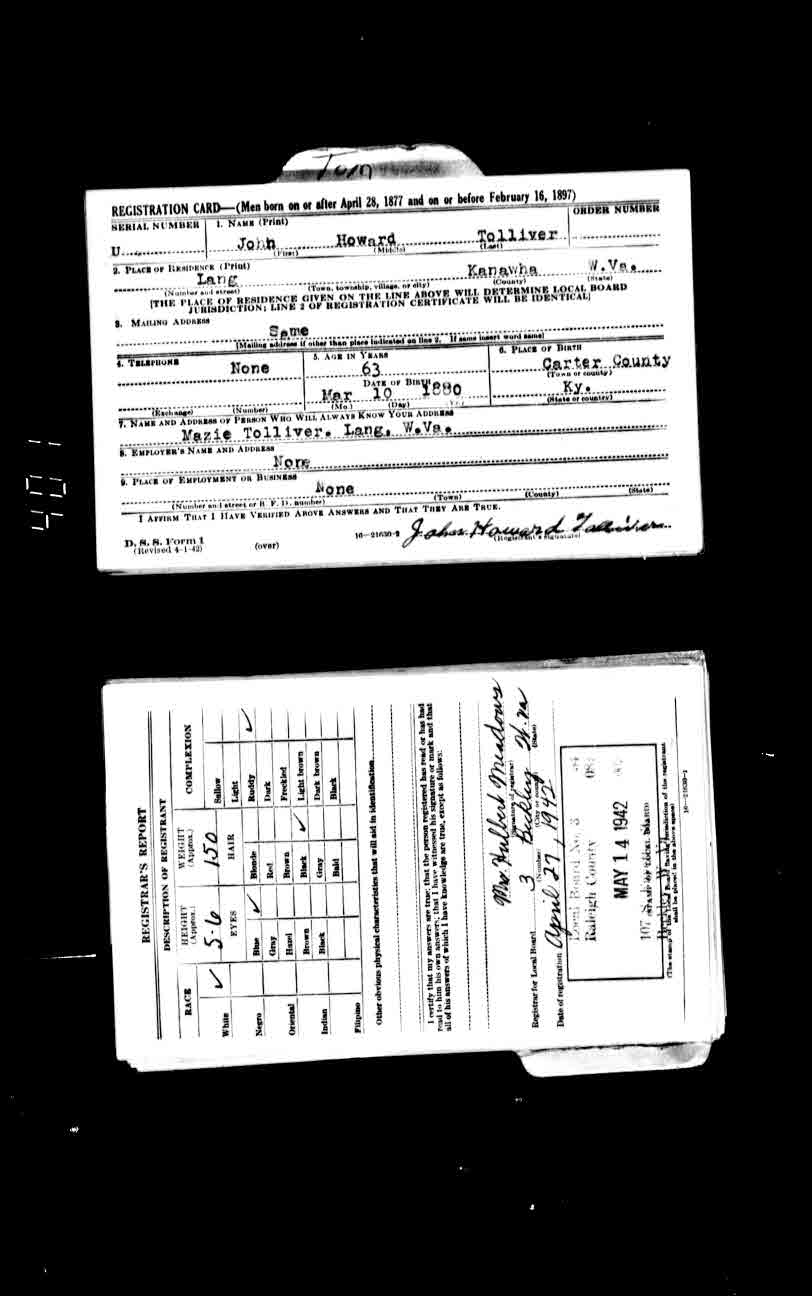 Tom
REGISTRATION CARD—(Men born on or after April 28, 1877 and on or before February 16, 1897)
SERIAL NUMBER 1. NAME (Print) ORDER NUMBER
U John Howard Tolliver
(First) (Middle) (Last)
2. PLACE OF RESIDENCE (Print)
Lang Kanawha W.Va.
(Number and street) (Town, township, village, or city) (County) (State)
[THE PLACE OF RESIDENCE GIVEN ON THE LINE ABOVE WILL DETERMINE LOCAL BOARD
JURISDICTION; LINE 2 OF REGISTRATION CERTIFICATE WILL BE IDENTICAL]
3. MAILING ADDRESS
Same
[Mailing address if other than place indicated on line 2. If same insert word same]
4. TELEPHONE 5. AGE IN YEARS 6. PLACE OF BIRTH
None 63 Carter County
DATE OF BIRTH (Town or county)
Mar 10 1880 Ky.
(Exchange) (Number) (Mo.) (Day) (Yr.) (State or country)
7. NAME AND ADDRESS OF PERSON WHO WILL ALWAYS KNOW YOUR ADDRESS
Mazie Tolliver. Lang, W.Va.
8. EMPLOYER'S NAME AND ADDRESS
None
9. PLACE OF EMPLOYMENT OR BUSINESS
None
(Number and street or R. F. D. number) (Town) (County) (State)
I AFFIRM THAT I HAVE VERIFIED ABOVE ANSWERS AND THAT THEY ARE TRUE.
D. S. S. Form 1 16—21630-2 John Howard Tolliver
(Revised 4-1-42) (over) (Registrant's signature)
401
REGISTRAR'S REPORT
DESCRIPTION OF REGISTRANT
RACE HEIGHT (Approx.) WEIGHT (Approx.) COMPLEXION
White ✓ 5-6 150 Sallow
EYES HAIR Light
Negro Blue ✓ Blonde Ruddy ✓
Gray Red Dark
Oriental Hazel Brown Freckled
Brown Black ✓ Light brown
Indian Black Gray Dark brown
Filipino Bald Black
Other obvious physical characteristics that will aid in identification
I certify that my answers are true; that the person registered has read or has had
read to him his own answers; that I have witnessed his signature or mark and that
all of his answers of which I have knowledge are true, except as follows:
Mrs. Hulbert Meadows
(Signature of registrar)
Registrar for Local Board 3 Beckley W. Va
(Number) (City or county) (State)
Date of registration April 27, 1942
Local Board No. 3
Raleigh County
MAY 14 1942
107 S.
(STAMP OF LOCAL BOARD)
(The stamp of the Local Board having jurisdiction of the registrant
shall be placed in the above space)
16—21630-1